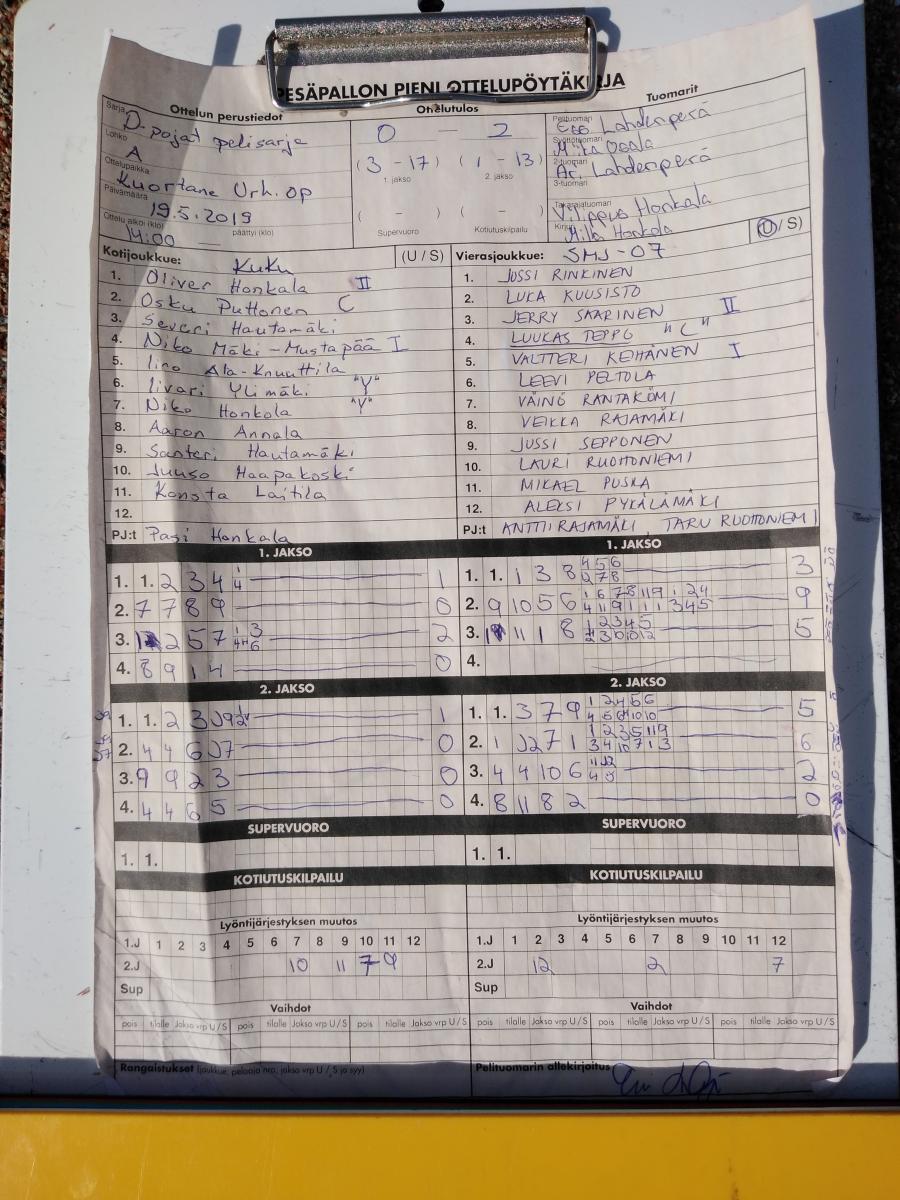 PESÄPALLON PIENI OTTELUPÖYTÄKIRJA
Ottelun perustiedot
Ottelutulos
Tuomarit
Sarja
D-pojat pelisarja
Lohko
A
Ottelupaikka
Kuortane Urh. op
Päivämäärä
19.5.2019
Ottelu alkoi (klo)
14:00
päättyi (klo)
0 — 2
(3 - 17) (1 - 13)
1. jakso 2. jakso
( - ) ( - )
Supervuoro Kotiutuskilpailu
Pelituomari
Lahdenperä
Syöttötuomari
Mika Ojala
2-tuomari
Ar. Lahdenperä
3-tuomari
Takarajatuomari
Honkala
Kirjuri
Milla Honkala
(U / S)
Kotijoukkue: KuKu (U / S)
1. Oliver Honkala II
2. Osku Puttonen C
3. Severi Hautamäki
4. Niko Mäki-Mustapää I
5. Iiro Ala-Knuuttila
6. Iivari Ylimäki "Y"
7. Niko Honkola "Y"
8. Aaron Annala
9. Santeri Hautamäki
10. Juuso Haapakoski
11. Konsta Laitila
12.
PJ:t Pasi Honkala
Vierasjoukkue: SMJ-07
1. JUSSI RINKINEN
2. LUKA KUUSISTO
3. JERRY SAARINEN II
4. LUUKAS TEPPO "C"
5. VALTTERI KEIHÄNEN I
6. LEEVI PELTOLA
7. VÄINÖ RANTAKÖMI
8. VEIKKA RAJAMÄKI
9. JUSSI SEPPONEN
10. LAURI RUOHONIEMI
11. MIKAEL PUSKA
12. ALEKSI PYKÄLÄMÄKI
PJ:t ANTTI RAJAMÄKI, TARU RUOHONIEMI
1. JAKSO
1. 1. 2 3 4 1
2. 7 7 8 9 0
3. 2 5 7 2
4. 8 9 1 4 0
1. JAKSO
1. 1. 1 3 8 3
2. 9 10 5 6 9
3. 11 1 8 5
4.
2. JAKSO
1. 1. 2 3 1
2. 4 4 6 J7 0
3. 9 9 2 3 0
4. 4 4 6 5 0
2. JAKSO
1. 1. 3 7 9 5
2. 1 J2 7 1 6
3. 4 4 10 6 2
4. 8 11 8 2 0
SUPERVUORO
1. 1.
SUPERVUORO
1. 1.
KOTIUTUSKILPAILU
KOTIUTUSKILPAILU
Lyöntijärjestyksen muutos
1.J 1 2 3 4 5 6 7 8 9 10 11 12
2.J 10 11 7 9
Sup
Lyöntijärjestyksen muutos
1.J 1 2 3 4 5 6 7 8 9 10 11 12
2.J 12 2 7
Sup
Vaihdot
pois tilalle Jakso vrp U / S pois tilalle Jakso vrp U / S pois tilalle Jakso vrp U / S
Vaihdot
pois tilalle Jakso vrp U / S pois tilalle Jakso vrp U / S pois tilalle Jakso vrp U / S
Rangaistukset (joukkue, pelaaja nro, jakso vrp U / S ja syy)
Pelituomarin allekirjoitus